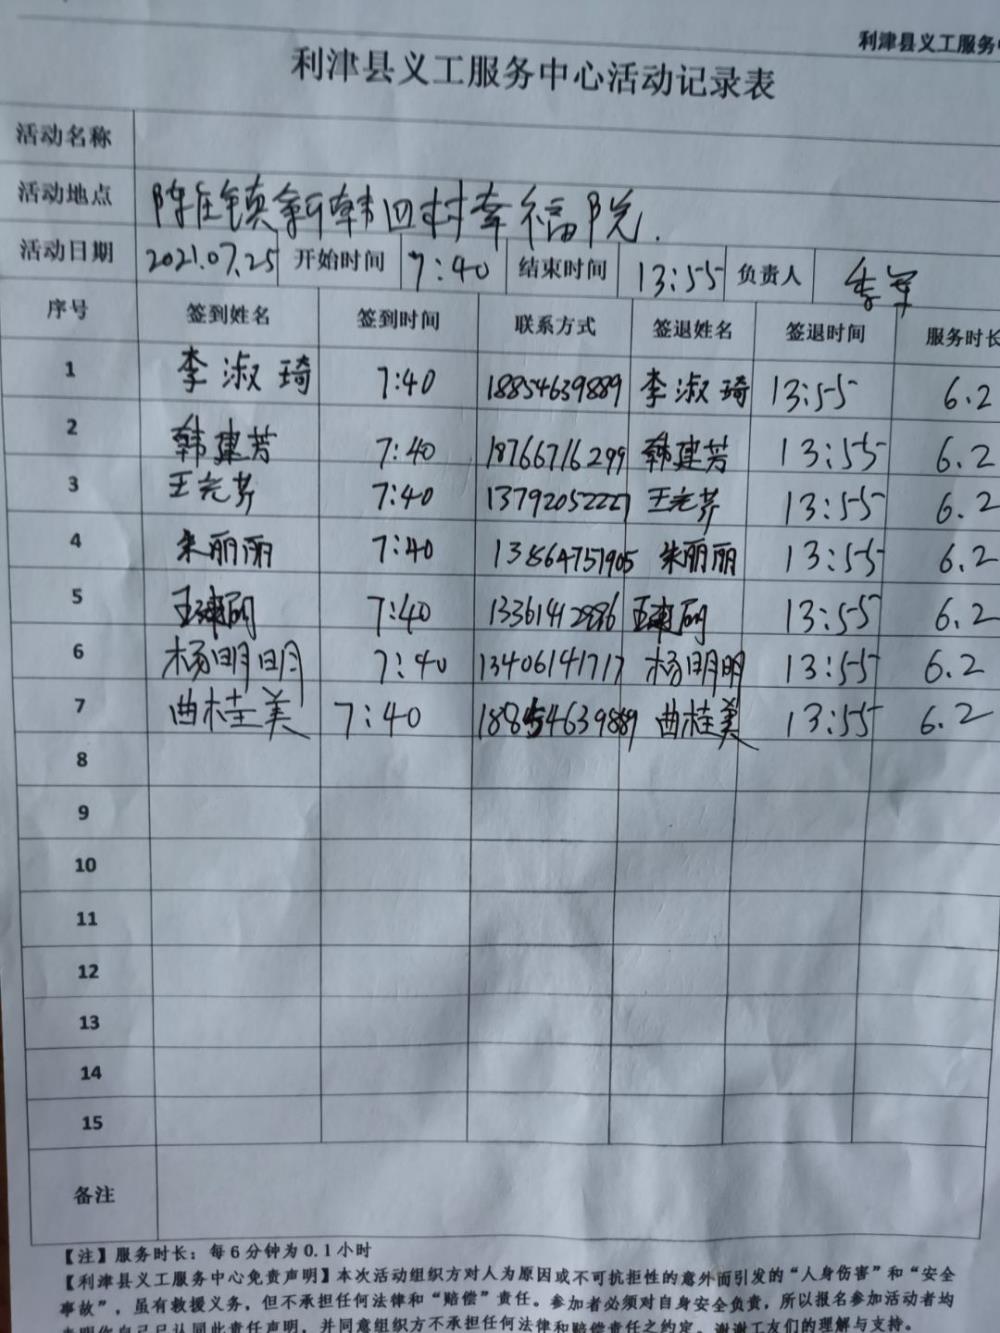 利津县义工服务
利津县义工服务中心活动记录表
活动名称
活动地点 陈庄镇新韩回村幸福院.
活动日期 2021.07.25 开始时间 7:40 结束时间 13:55 负责人
序号 签到姓名 签到时间 联系方式 签退姓名 签退时间 服务时长
1 李淑琦 7:40 18854639889 李淑琦 13:55 6.2
2 韩建芳 7:40 18766716299 韩建芳 13:55 6.2
3 王光芹 7:40 13792052227 王光芹 13:55 6.2
4 朱丽丽 7:40 13864751905 朱丽丽 13:55 6.2
5 7:40 13361412886 13:55 6.2
6 杨明明 7:40 13406141717 杨明明 13:55 6.2
7 曲桂美 7:40 18854639889 曲桂美 13:55 6.2
8
9
10
11
12
13
14
15
备注
【注】服务时长：每6分钟为0.1小时
【利津县义工服务中心免责声明】本次活动组织方对人为原因或不可抗拒性的意外而引发的“人身伤害”和“安全
事故”，虽有救援义务，但不承担任何法律和“赔偿”责任。参加者必须对自身安全负责，所以报名参加活动者均
表明你自己已认同此责任声明，并同意组织方不承担任何法律和赔偿责任之约定。谢谢工友们的理解与支持。